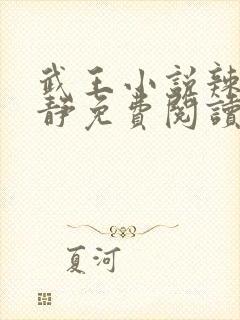 武王小說辣
靜免費閱讀
夏河